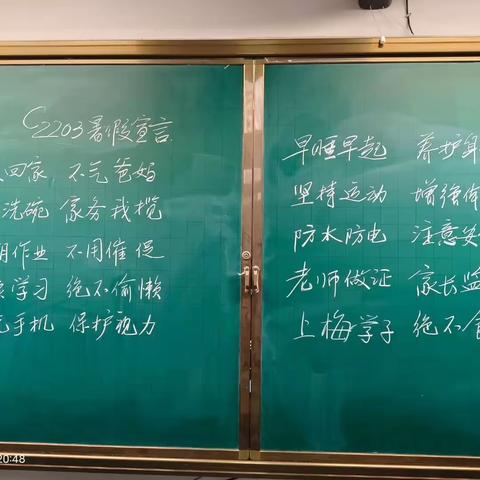 C2203暑假宣言
回家 不气爸妈
洗碗 家务我揽
作业 不用催促
学习 绝不偷懒
手机 保护视力
早睡早起 养护身
坚持运动 增强体
防水防电 注意安
老师做证 家长监
上梅学子 绝不食
20:48